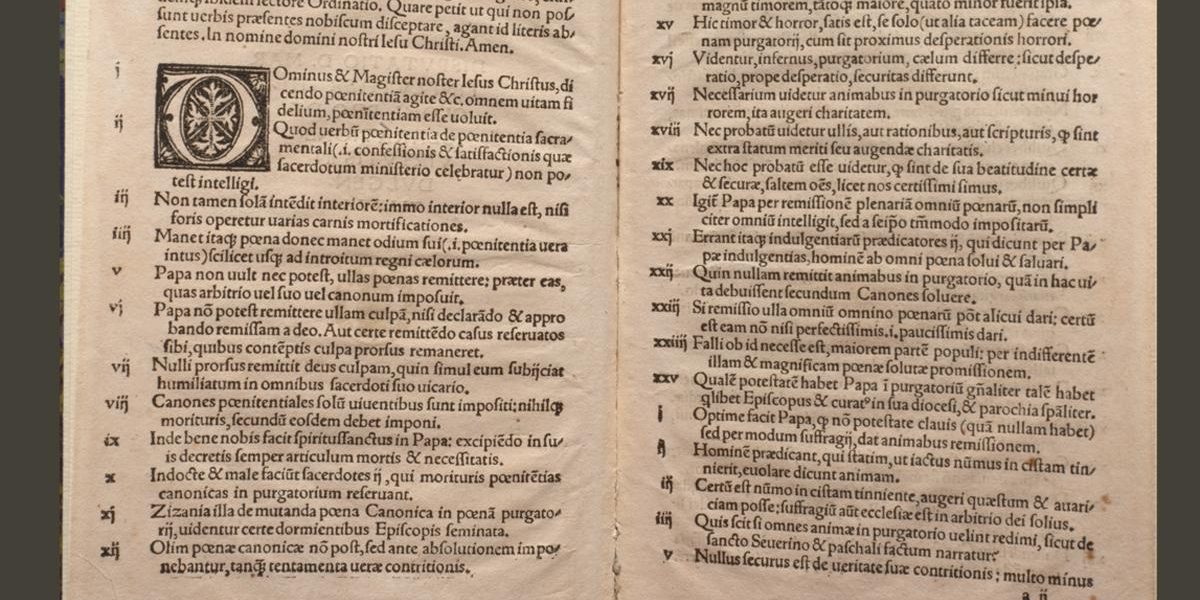 Ordinatio. Quare petit ut qui non pos/
sunt uerbis præsentes nobiscum disceptare, agant id literis ab/
sentes. In nomine domini nostri Iesu Christi. Amen.
j Dominus & Magister noster Iesus Christus, di
cendo pœnitentiã agite &c. omnem uitam fi
delium, pœnitentiam esse uoluit.
ij Quod uerbũ pœnitentia de pœnitentia sacra/
mentali(.i. confessionis & satisfactionis quæ
sacerdotum ministerio celebratur) non po/
test intelligi.
iij Non tamen solã intẽdit interiorẽ: immo interior nulla est, nisi
foris operetur uarias carnis mortificationes.
iiij Manet itaqꝫ pœna donec manet odium sui(.i. pœnitentia uera
intus) scilicet usqꝫ ad introitum regni cælorum.
v Papa non uult nec potest, ullas pœnas remittere: præter eas,
quas arbitrio uel suo uel canonum imposuit.
vj Papa nõ potest remittere ullam culpã, nisi declarãdo & appro
bando remissam a deo. Aut certe remittẽdo casus reseruatos
sibi, quibus contẽptis culpa prorsus remaneret.
vij Nulli prorsus remittit deus culpam, quin simul eum subijciat
humiliatum in omnibus sacerdoti suo uicario.
viij Canones pœnitentiales solũ uiuentibus sunt impositi: nihilqꝫ
morituris, secundũ eosdem debet imponi.
ix Inde bene nobis facit spiritussanctus in Papa: excipiẽdo in su/
is decretis semper articulum mortis & necessitatis.
x Indocte & male faciũt sacerdotes ij, qui morituris pœnitẽtias
canonicas in purgatorium reseruant.
xj Zizania illa de mutanda pœna Canonica in pœnã purgato/
rij, uidentur certe dormientibus Episcopis seminata.
xij Olim pœnæ canonicæ nõ post, sed ante absolutionem impo/
nebantur, tanqꝫ tentamenta ueræ contritionis.
magnũ timorem, tãtoqꝫ maiorẽ, quato minor fuerit ipsa.
xv Hic timor & horror, satis est, se solo (ut alia taceam) facere pœ/
nam purgatorij, cum sit proximus desperationis horrori.
xvj Videntur, infernus, purgatorium, cælum differre: sicut despe/
ratio, prope desperatio, securitas differunt.
xvij Necessarium uidetur animabus in purgatorio sicut minui hor
rorem, ita augeri charitatem.
xviij Nec probatũ uidetur ullis, aut rationibus, aut scripturis, ꝙ sint
extra statum meriti seu augendæ charitatis.
xix Nec hoc probatũ esse uidetur, ꝙ sint de sua beatitudine certæ
& securæ, saltem oẽs, licet nos certissimi simus.
xx Igit̃ Papa per remissionẽ plenariã omniũ pœnarũ, non simpli
citer omniũ intelligit, sed a seipõ tm̃modo impositarũ.
xxj Errant itaqꝫ indulgentiarũ prædicatores ij, qui dicunt per Pa/
pæ indulgentias, hominẽ ab omni pœna solui & saluari.
xxij Quin nullam remittit animabus in purgatorio, quã in hac ui/
ta debuissent secundum Canones soluere.
xxiij Si remissio ulla omniũ omnino pœnarũ põt alicui dari: certũ
est eam nõ nisi perfectissimis .i. paucissimis dari.
xxiiij Falli ob id necesse est, maiorem partẽ populi: per indifferentẽ
illam & magnificam pœnæ solutæ promissionem.
xxv Qualẽ potestatẽ habet Papa ĩ purgatoriũ gñaliter talẽ habet
q̃libet Episcopus & curatꝰ in sua diocesi, & parochia spãliter.
j Optime facit Papa, ꝙ nõ potestate clauis (quã nullam habet)
sed per modum suffragij, dat animabus remissionem.
ij Hominẽ prædicant, qui statim, ut iactus nũmus in cistam tin/
nierit, euolare dicunt animam.
iij Certũ est nũmo in cistam tinniente, augeri quæstum & auari/
ciam posse: suffragiũ aũt ecclesiæ est in arbitrio dei solius.
iiij Quis scit si omnes animæ in purgatorio uelint redimi, sicut de
sancto Seuerino & paschali factum narratur.
v Nullus securus est de ueritate suæ contritionis; multo minus
a ij